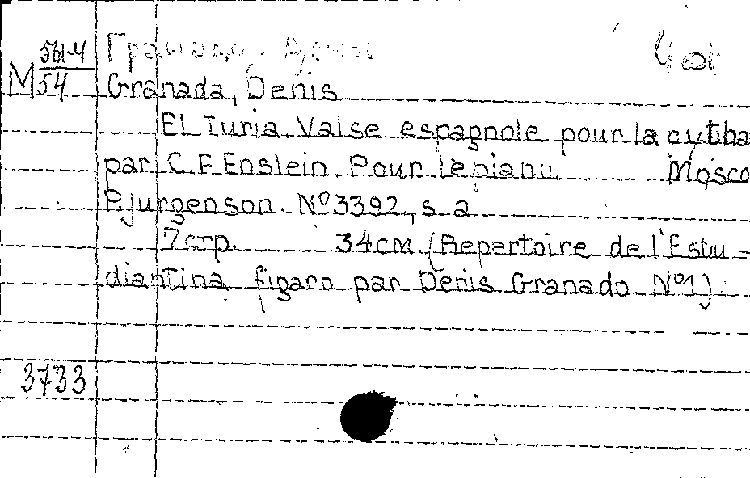 56ч-4
М 54
Гранадо, Денис
Granada, Denis
El Turia. Valse espagnole pour la cytha
par C. F. Enslein. Pour le piano Mosco
P. Jurgenson. № 3392, s. a.
7 стр. 34 см. (Repertoire de l'Estu-
diantina figaro par Denis Granado №1)
3733